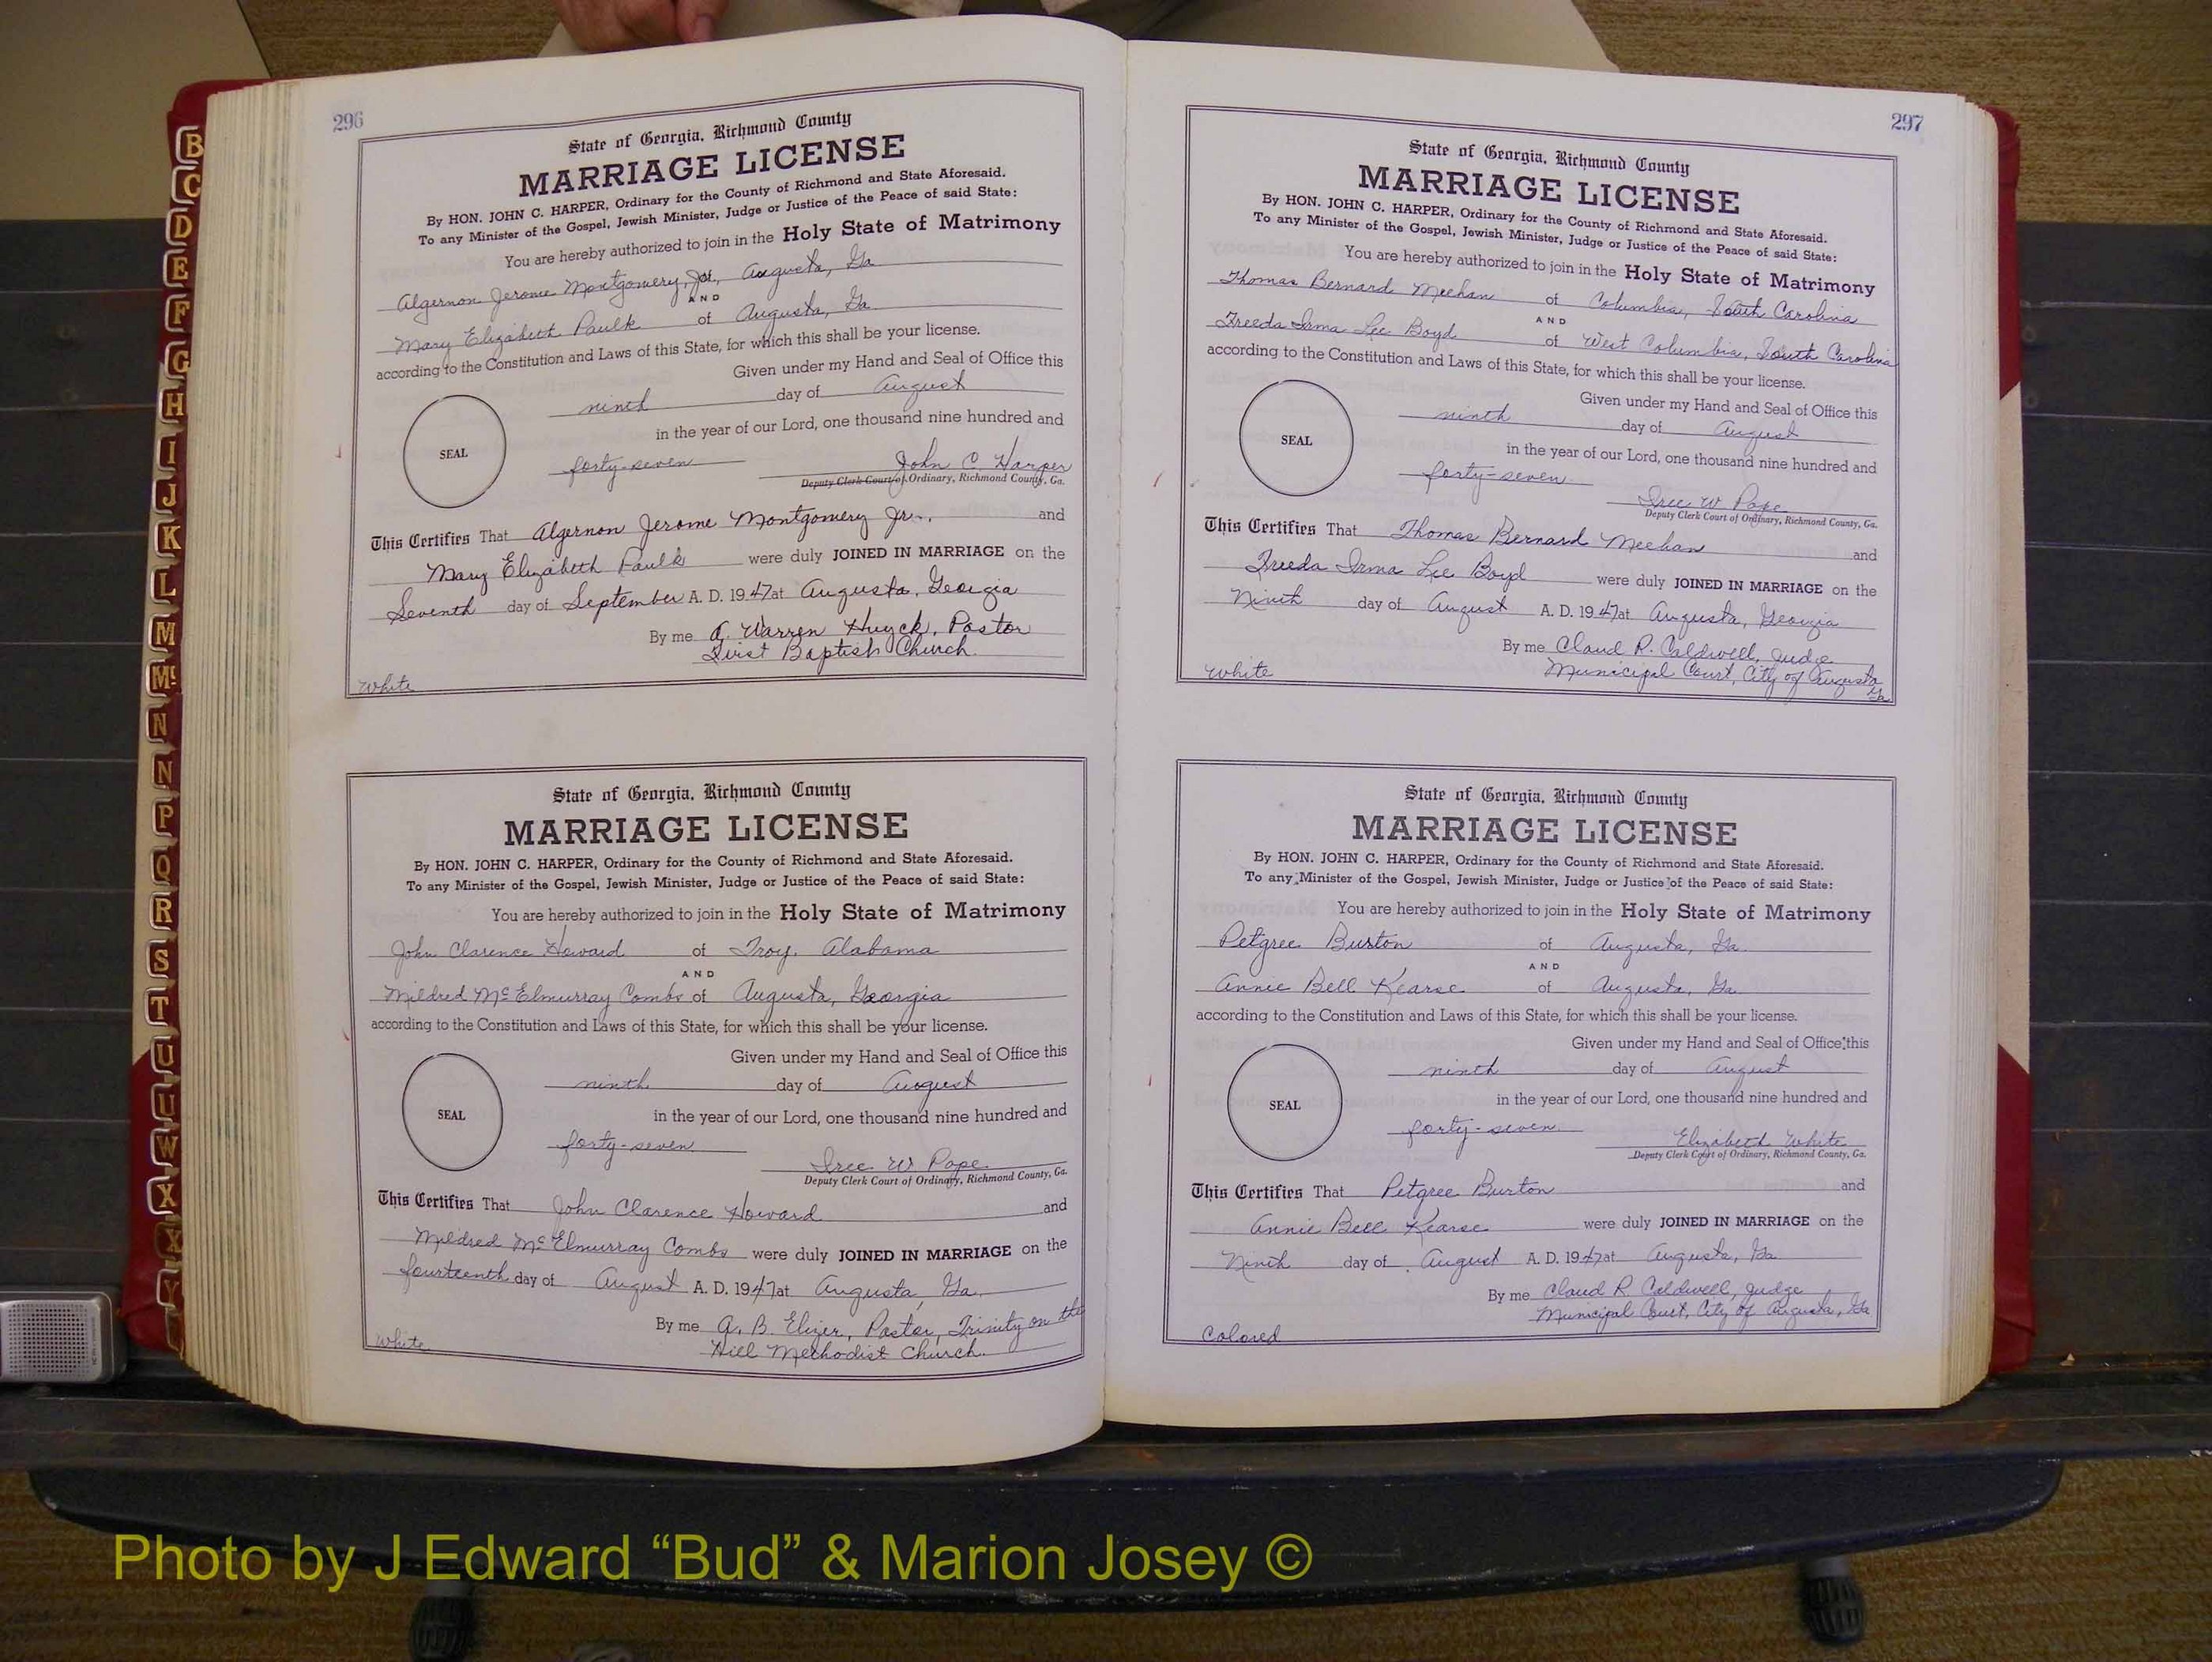 B
C
D
E
F
G
H
I
J
K
L
M
Mc
N
N
P
Q
R
S
T
U
U
W
X
X
Y
296
State of Georgia, Richmond County
MARRIAGE LICENSE
By HON. JOHN C. HARPER, Ordinary for the County of Richmond and State Aforesaid.
To any Minister of the Gospel, Jewish Minister, Judge or Justice of the Peace of said State:
You are hereby authorized to join in the Holy State of Matrimony
Algernon Jerome Montgomery, Jr., Augusta, Ga
AND
Mary Elizabeth Paulk of Augusta, Ga
according to the Constitution and Laws of this State, for which this shall be your license.
Given under my Hand and Seal of Office this
ninth day of August
in the year of our Lord, one thousand nine hundred and
SEAL
forty-seven John C. Harper
Deputy Clerk Court of Ordinary, Richmond County, Ga.
This Certifies That Algernon Jerome Montgomery Jr., and
Mary Elizabeth Paulk were duly JOINED IN MARRIAGE on the
Seventh day of September A. D. 1947 at Augusta, Georgia
By me A. Warren Huyck, Pastor
First Baptist Church.
White
State of Georgia, Richmond County
MARRIAGE LICENSE
By HON. JOHN C. HARPER, Ordinary for the County of Richmond and State Aforesaid.
To any Minister of the Gospel, Jewish Minister, Judge or Justice of the Peace of said State:
You are hereby authorized to join in the Holy State of Matrimony
John Clarence Howard of Troy, Alabama
AND
Mildred McElmurray Combs of Augusta, Georgia
according to the Constitution and Laws of this State, for which this shall be your license.
Given under my Hand and Seal of Office this
ninth day of August
SEAL
in the year of our Lord, one thousand nine hundred and
forty-seven
Iree W. Pope
Deputy Clerk Court of Ordinary, Richmond County, Ga.
This Certifies That John Clarence Howard and
Mildred McElmurray Combs were duly JOINED IN MARRIAGE on the
fourteenth day of August A. D. 1947 at Augusta, Ga.
By me A. B. Elizer, Pastor, Trinity on the
Hill Methodist Church.
White
297
State of Georgia, Richmond County
MARRIAGE LICENSE
By HON. JOHN C. HARPER, Ordinary for the County of Richmond and State Aforesaid.
To any Minister of the Gospel, Jewish Minister, Judge or Justice of the Peace of said State:
You are hereby authorized to join in the Holy State of Matrimony
Thomas Bernard Meehan of Columbia, South Carolina
AND
Freeda Irma Lee Boyd of West Columbia, South Carolina
according to the Constitution and Laws of this State, for which this shall be your license.
Given under my Hand and Seal of Office this
ninth day of August
SEAL
in the year of our Lord, one thousand nine hundred and
forty-seven
Iree W Pope
Deputy Clerk Court of Ordinary, Richmond County, Ga.
This Certifies That Thomas Bernard Meehan and
Freeda Irma Lee Boyd were duly JOINED IN MARRIAGE on the
Ninth day of August A. D. 1947 at Augusta, Georgia
By me Claud R. Caldwell, Judge
Municipal Court, City of Augusta
Ga
White
State of Georgia, Richmond County
MARRIAGE LICENSE
By HON. JOHN C. HARPER, Ordinary for the County of Richmond and State Aforesaid.
To any Minister of the Gospel, Jewish Minister, Judge or Justice of the Peace of said State:
You are hereby authorized to join in the Holy State of Matrimony
Petgree Burton of Augusta, Ga
AND
Annie Bell Kearse of Augusta, Ga
according to the Constitution and Laws of this State, for which this shall be your license.
Given under my Hand and Seal of Office this
ninth day of August
SEAL
in the year of our Lord, one thousand nine hundred and
forty-seven
Elizabeth White
Deputy Clerk Court of Ordinary, Richmond County, Ga.
This Certifies That Petgree Burton and
Annie Bell Kearse were duly JOINED IN MARRIAGE on the
Ninth day of August A. D. 1947 at Augusta, Ga
By me Claud R. Caldwell, Judge
Municipal Court, City of Augusta, Ga
Colored
Photo by J Edward “Bud” & Marion Josey ©